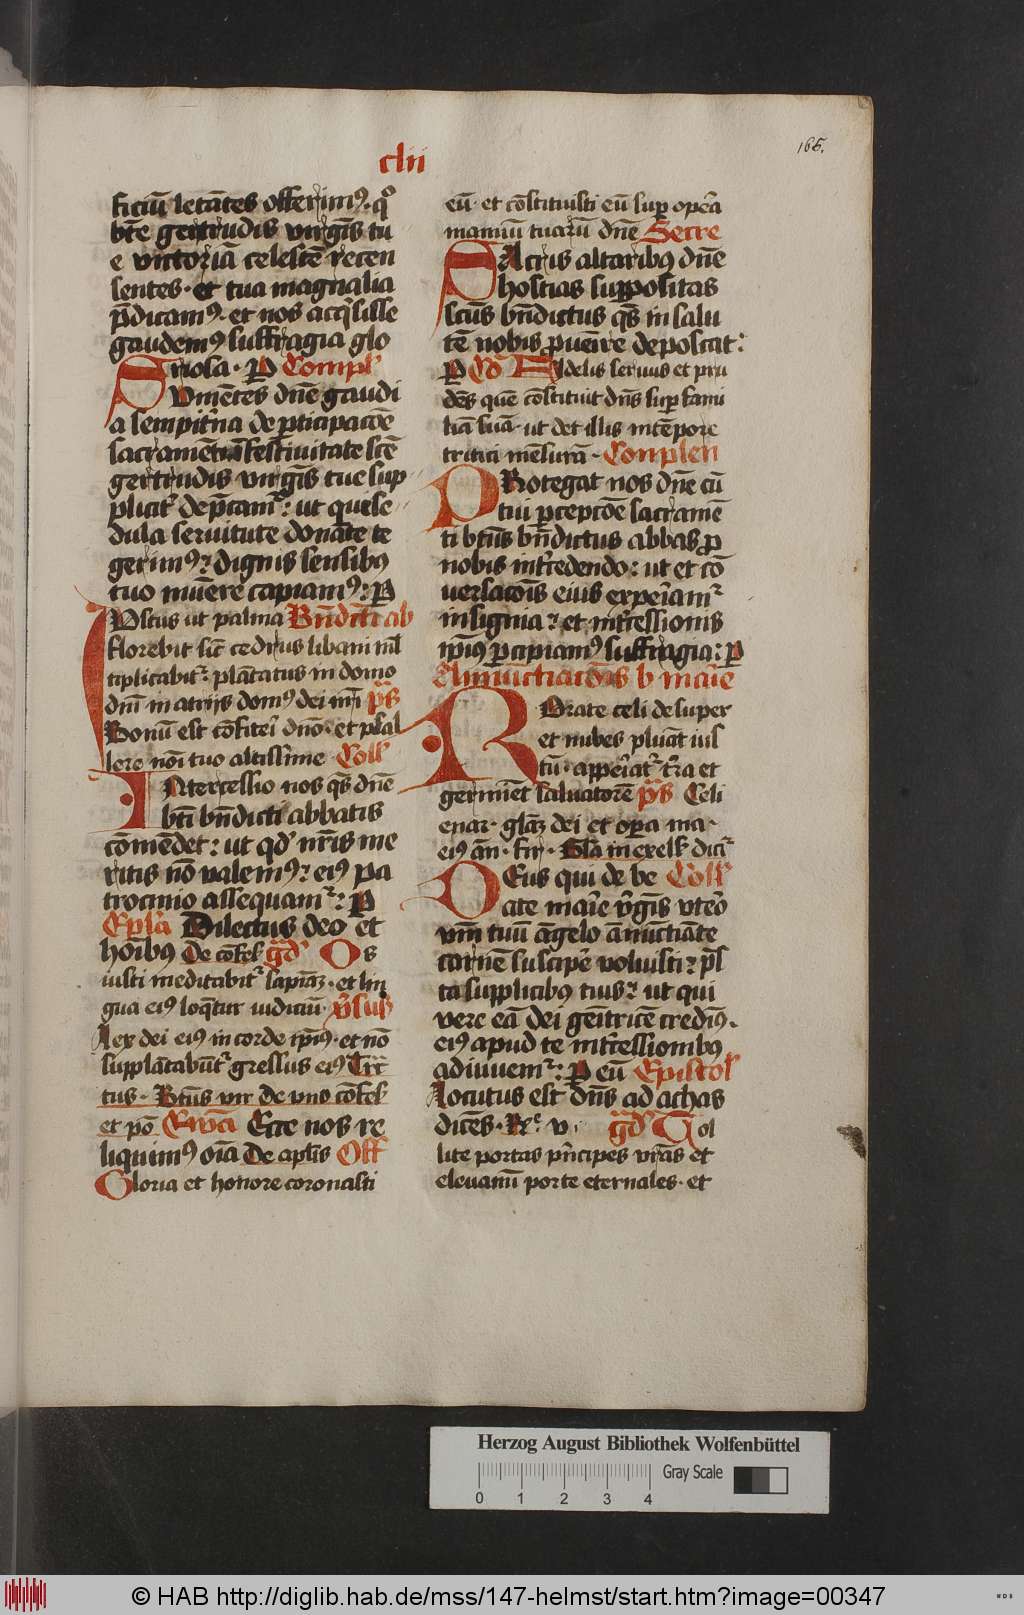 clii
165.
ficiū letātes offerimꝰ. qͦ
btē gertrudis v̄irgīs tu
e victoriā celestē recen
sentes. et tua magnalia
p̄dicamꝰ. et nos acq̄sisse
gaudemꝰ suffragia glo
riosa. P Compl̄
Sumētes dn̄e gaudi
a sempit̄na de ꝑticipacōe
sacramēti ī festiuitate scē
gertrudis virgīs tue sup
plicit͛ dep̄camᷣ: ut que se
dula seruitute donāte te
gerimꝰ: dignis sensibꝰ
tuo mun̄e capiamꝰ: P
Iustus ut palma Bn̄dicti ab
florebit sic̄ cedrus libani ml̄
tiplicabitᷣ: plātatus in domo
dn̄i in atrijs domꝰ dei nr̄i p̄s
Bonū est cōfiteri dn̄o. et psal
lere noī tuo altissime. Coll̄
Intercessio nos q̄s dn̄e
bt̄i bn̄dicti abbatis
cōmēdet: ut qd̓ nr̄is me
ritis nō valemꝰ: eiꝰ pa
trocinio assequamᷣ: P
Ep̄la Dilectus deo et
hoībus De cōfess̄ gd̄ Os
iusti meditabitᷣ sapiāꝫ. et lin
gua eiꝰ loq̄tur iudiciū. v̄sus
Lex dei eiꝰ in corde ip̄iꝰ. et nō
supplātabūtᷣ gressus eiꝰ Trc
tus. Btūs vir de vno cōfess̄
et pō Ewā Ecce nos re
liquimꝰ oīa De ap̄lis Off
Gloria et honore coronasti
eū. et cōstituisti eū suꝑ opera
manuū tuarū dn̄e Secre
Sacris altaribꝰ dn̄e
hostias suppositas
scūs bn̄dictus q̄s in salu
tē nobis ꝓuenire deposcat:
P Cō Fidelis seruus et pru
dēs quē cōstituit dn̄s suꝑ fami
liā suā. ut det illis in tēpore
tritici mēsurā. Complen
Protegat nos dn̄e cū
tui ꝑcepcōe sacramē
ti btūs bn̄dictus abbas ꝓ
nobis int̄cedendo: ut et cō
uersacōis eius experiamᷣ
insignia: et int̄cessionis
ip̄iꝰ ꝑcipiamꝰ suffragia: P
Annūctiacōis b marie
Rorate celi desuper
et nubes pluāt ius
tū. apperiatᷣ t̄ra et
germinēt saluatorē p̄s Celi
enar. glāꝫ dei et oꝑa ma.
eiꝰ an. fir. Glā in excels̄ dicitᷣ
Deus qui de be Coll̄
ate marie v̄gīs vtero
vm̄ tuū āgelo ānūctiāte
carnē suscipe voluisti: p̄s
ta supplicibꝰ tuis: ut qui
vere eā dei geītricē credimꝰ.
eiꝰ apud te int̄cessionibꝰ
adiuuemᷣ: P eū Epistol̄
Locutus est dn̄s ad achas
dicēs. Re͛ v. gd̄ Tol
lite portas p̄ncipes vr̄as et
eleuamī porte eternales. et
Herzog August Bibliothek Wolfenbüttel
Gray Scale
0 1 2 3 4
© HAB http://diglib.hab.de/mss/147-helmst/start.htm?image=00347